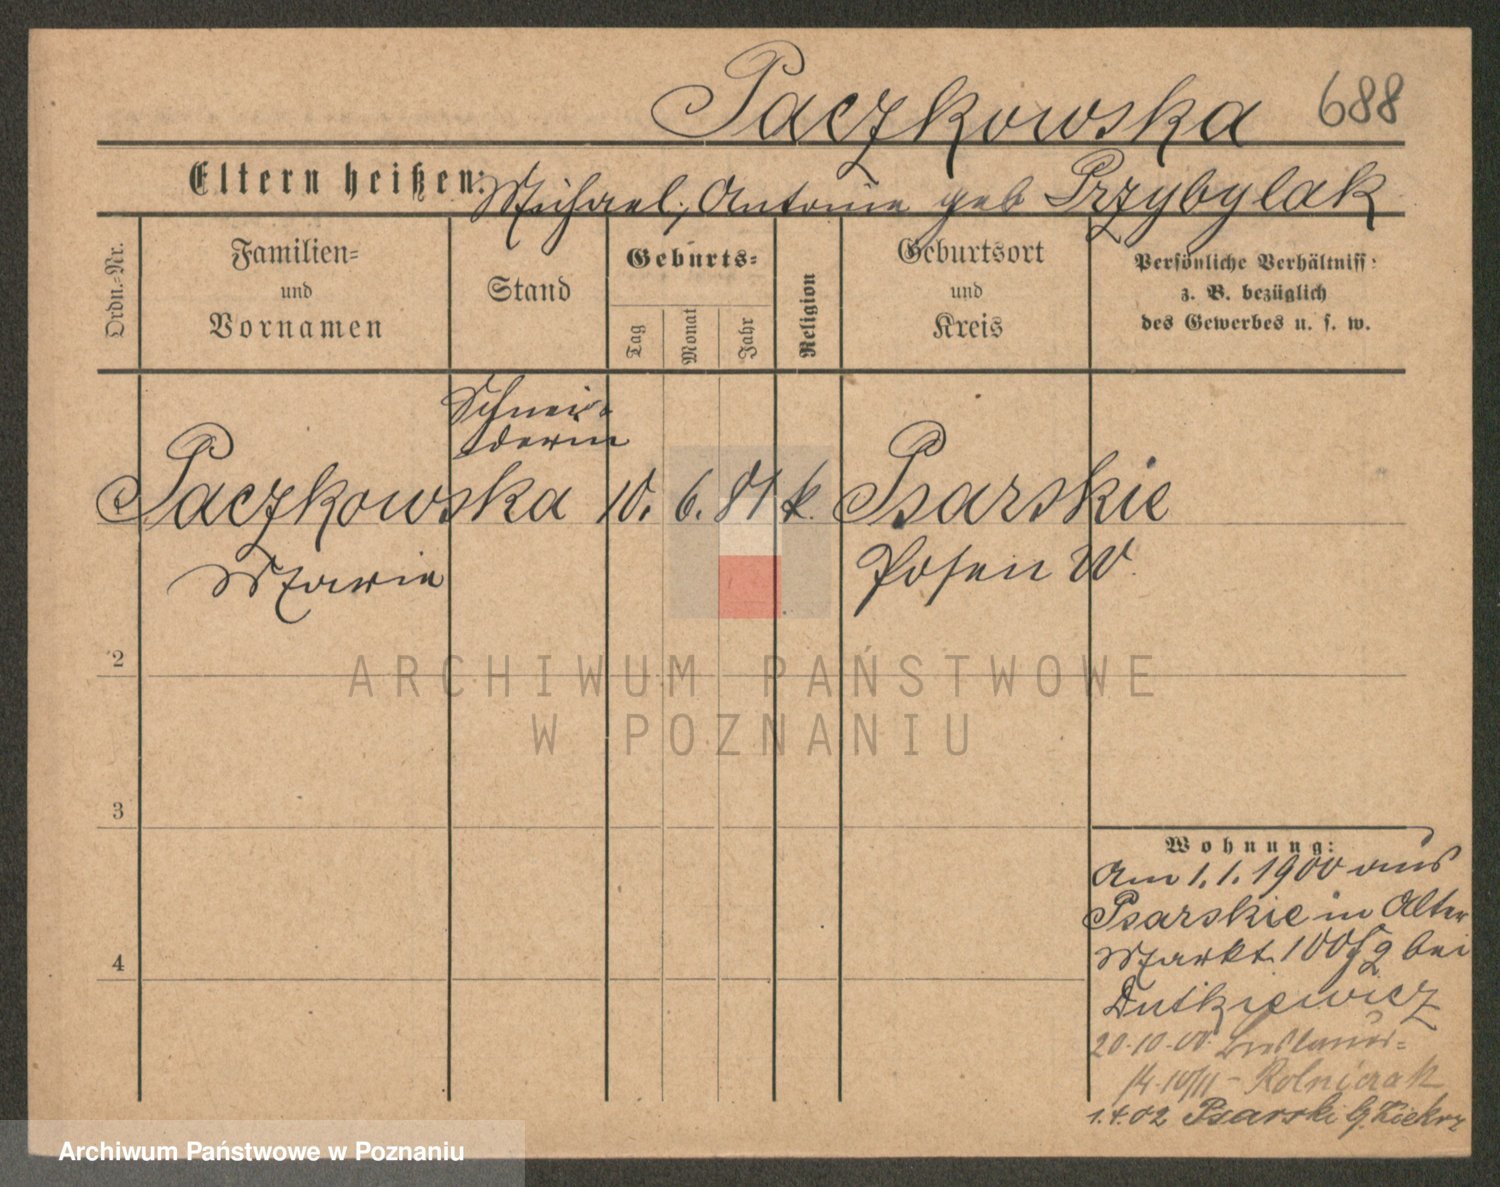 Paczkowska 688
Eltern heißen: Michael, Antonie geb Przybylak
Ordn.-Nr.
Familien-
und
Vornamen
Stand
Geburts-
Tag
Monat
Jahr
Religion
Geburtsort
und
Kreis
Persönliche Verhältniss-
z. B. bezüglich
des Gewerbes u. s. w.
Schnei-
derin
Paczkowska 10. 6. 81 k. Psarskie
Marie Posen W.
2
ARCHIWUM PAŃSTWOWE
W POZNANIU
3
Wohnung:
Am 1.1.1900 aus
Psarskie in Alter
Markt 100 bei
Dutkiewicz
20.10.00
Rolniczak
1.4.02 Psarski
4
Archiwum Państwowe w Poznaniu